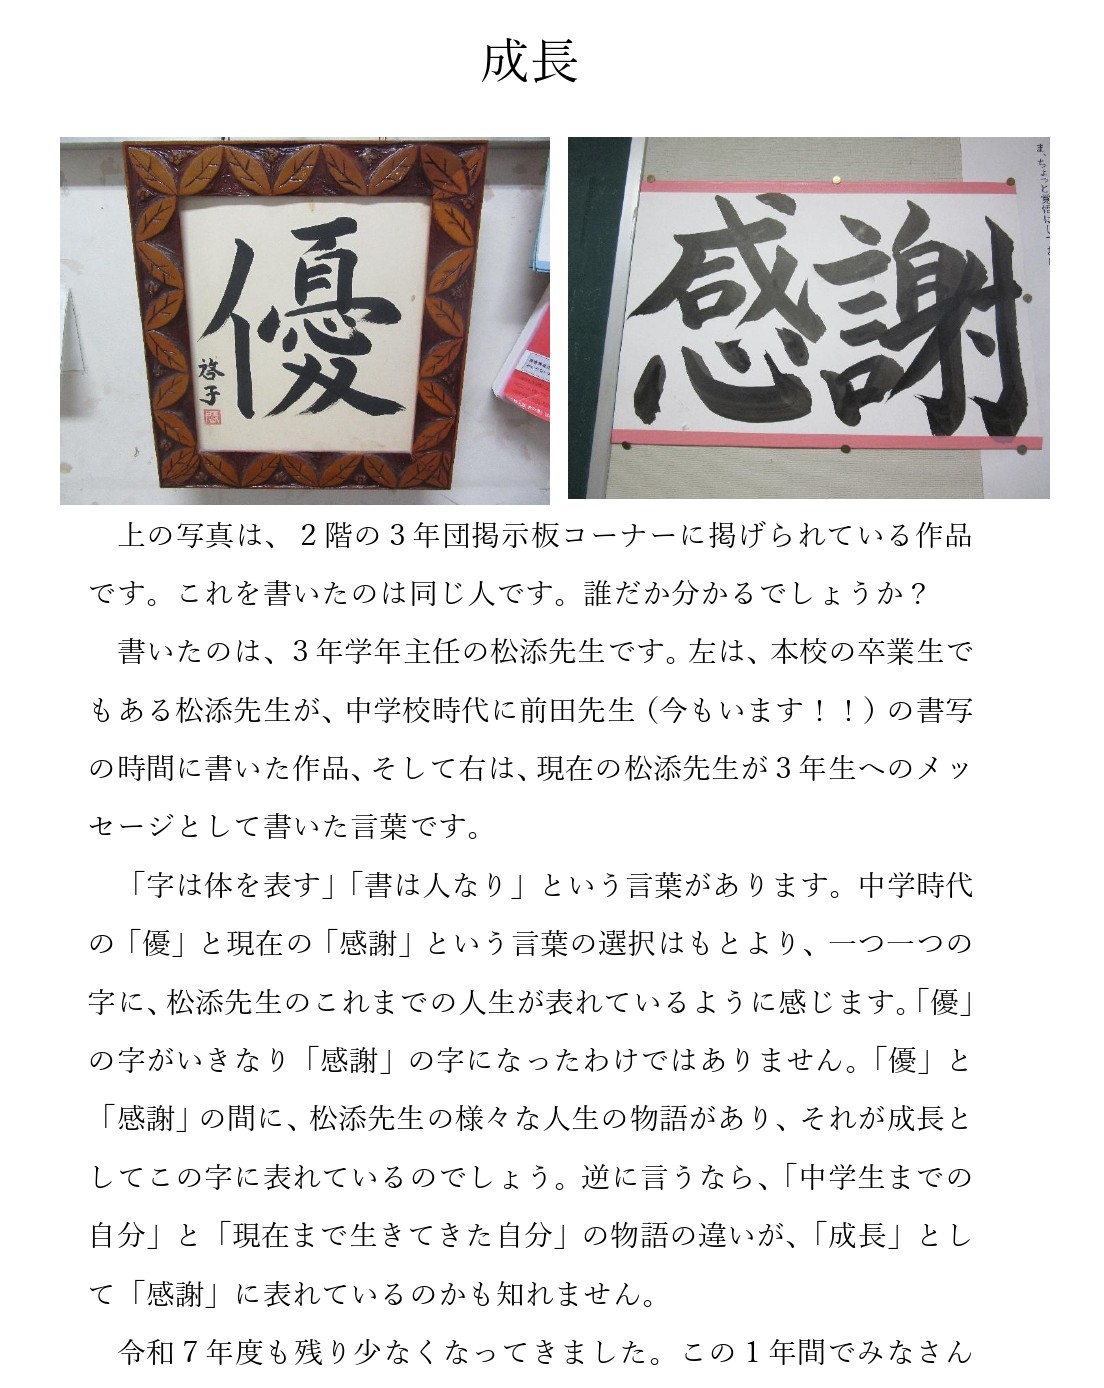 成長
優
啓子
感謝
上の写真は、２階の３年団掲示板コーナーに掲げられている作品
です。これを書いたのは同じ人です。誰だか分かるでしょうか？
書いたのは、３年学年主任の松添先生です。左は、本校の卒業生で
もある松添先生が、中学校時代に前田先生（今もいます！！）の書写
の時間に書いた作品、そして右は、現在の松添先生が３年生へのメッ
セージとして書いた言葉です。
「字は体を表す」「書は人なり」という言葉があります。中学時代
の「優」と現在の「感謝」という言葉の選択はもとより、一つ一つの
字に、松添先生のこれまでの人生が表れているように感じます。「優」
の字がいきなり「感謝」の字になったわけではありません。「優」と
「感謝」の間に、松添先生の様々な人生の物語があり、それが成長と
してこの字に表れているのでしょう。逆に言うなら、「中学生までの
自分」と「現在まで生きてきた自分」の物語の違いが、「成長」とし
て「感謝」に表れているのかも知れません。
令和７年度も残り少なくなってきました。この１年間でみなさん